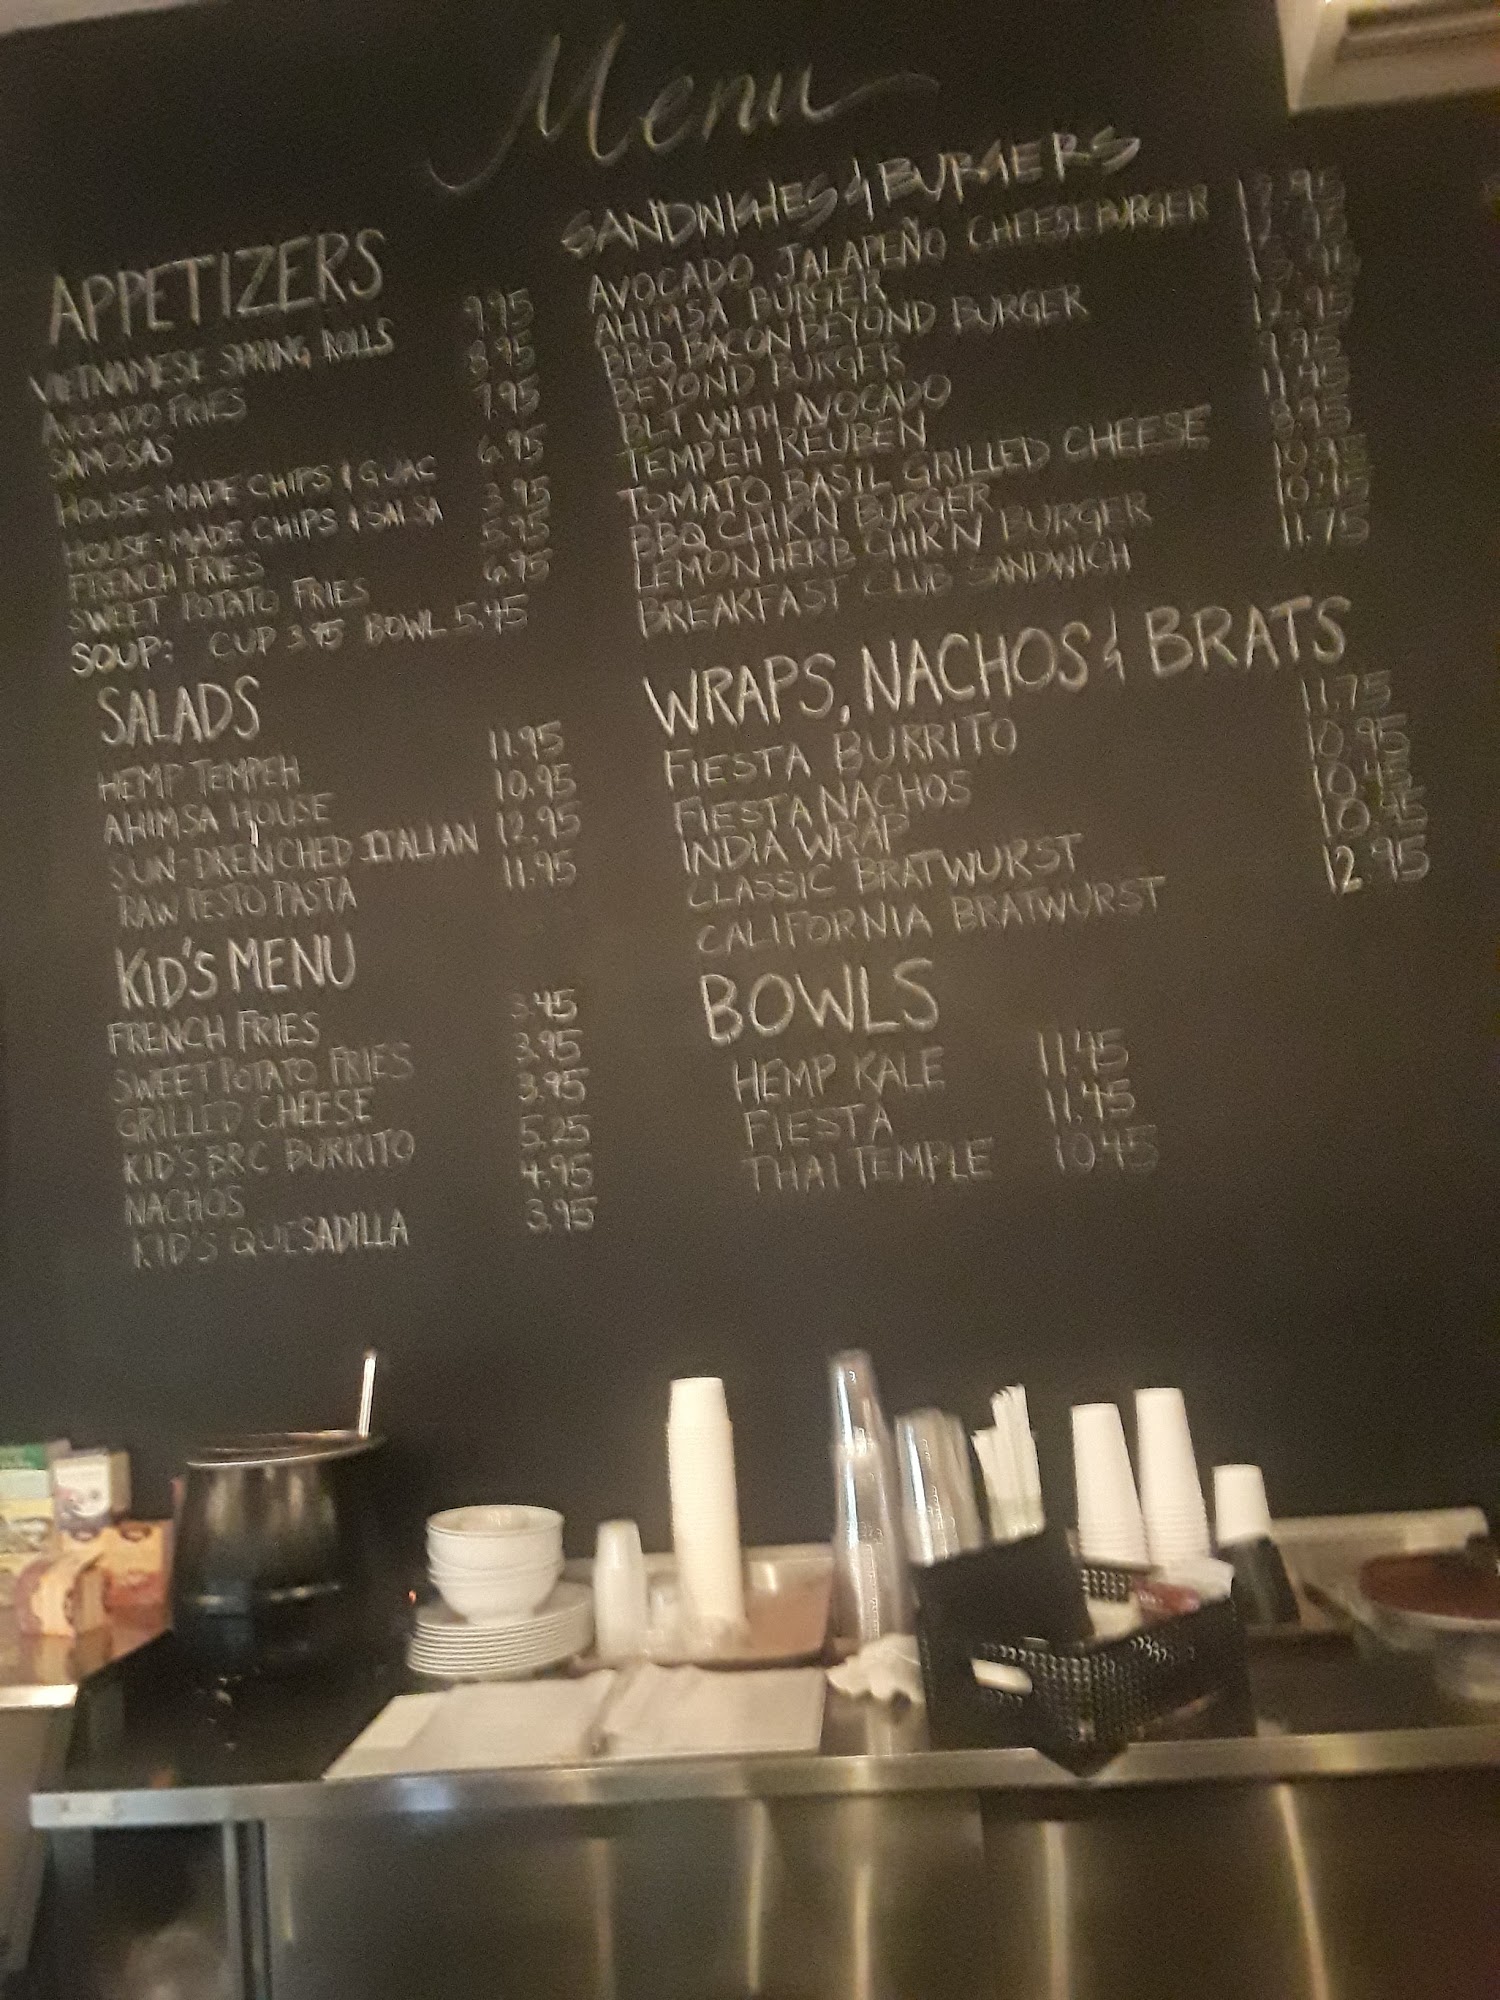 Menu
APPETIZERS
VIETNAMESE SPRING ROLLS 9.95
AVOCADO FRIES 8.95
SAMOSAS 7.95
HOUSE-MADE CHIPS & GUAC 6.95
HOUSE-MADE CHIPS & SALSA 3.95
FRENCH FRIES 5.95
SWEET POTATO FRIES 6.95
SOUP: CUP 3.95 BOWL 5.45
SALADS
HEMP TEMPEH 11.95
AHIMSA HOUSE 10.95
SUN-DRENCHED ITALIAN 12.95
RAW PESTO PASTA 11.95
KID'S MENU
FRENCH FRIES 3.45
SWEET POTATO FRIES 3.95
GRILLED CHEESE 3.95
KID'S BRC BURRITO 5.25
NACHOS 4.95
KID'S QUESADILLA 3.95
SANDWICHES & BURGERS
AVOCADO JALAPEÑO CHEESEBURGER
AHIMSA BURGER
BBQ BACON BEYOND BURGER
BEYOND BURGER 12.95
BLT WITH AVOCADO 9.95
TEMPEH REUBEN 11.45
TOMATO BASIL GRILLED CHEESE 8.95
BBQ CHIK'N BURGER
LEMON HERB CHIK'N BURGER
BREAKFAST CLUB SANDWICH 11.75
WRAPS, NACHOS & BRATS
FIESTA BURRITO 11.75
FIESTA NACHOS 10.95
INDIA WRAP
CLASSIC BRATWURST
CALIFORNIA BRATWURST 12.95
BOWLS
HEMP KALE 11.45
FIESTA 11.45
THAI TEMPLE 10.45